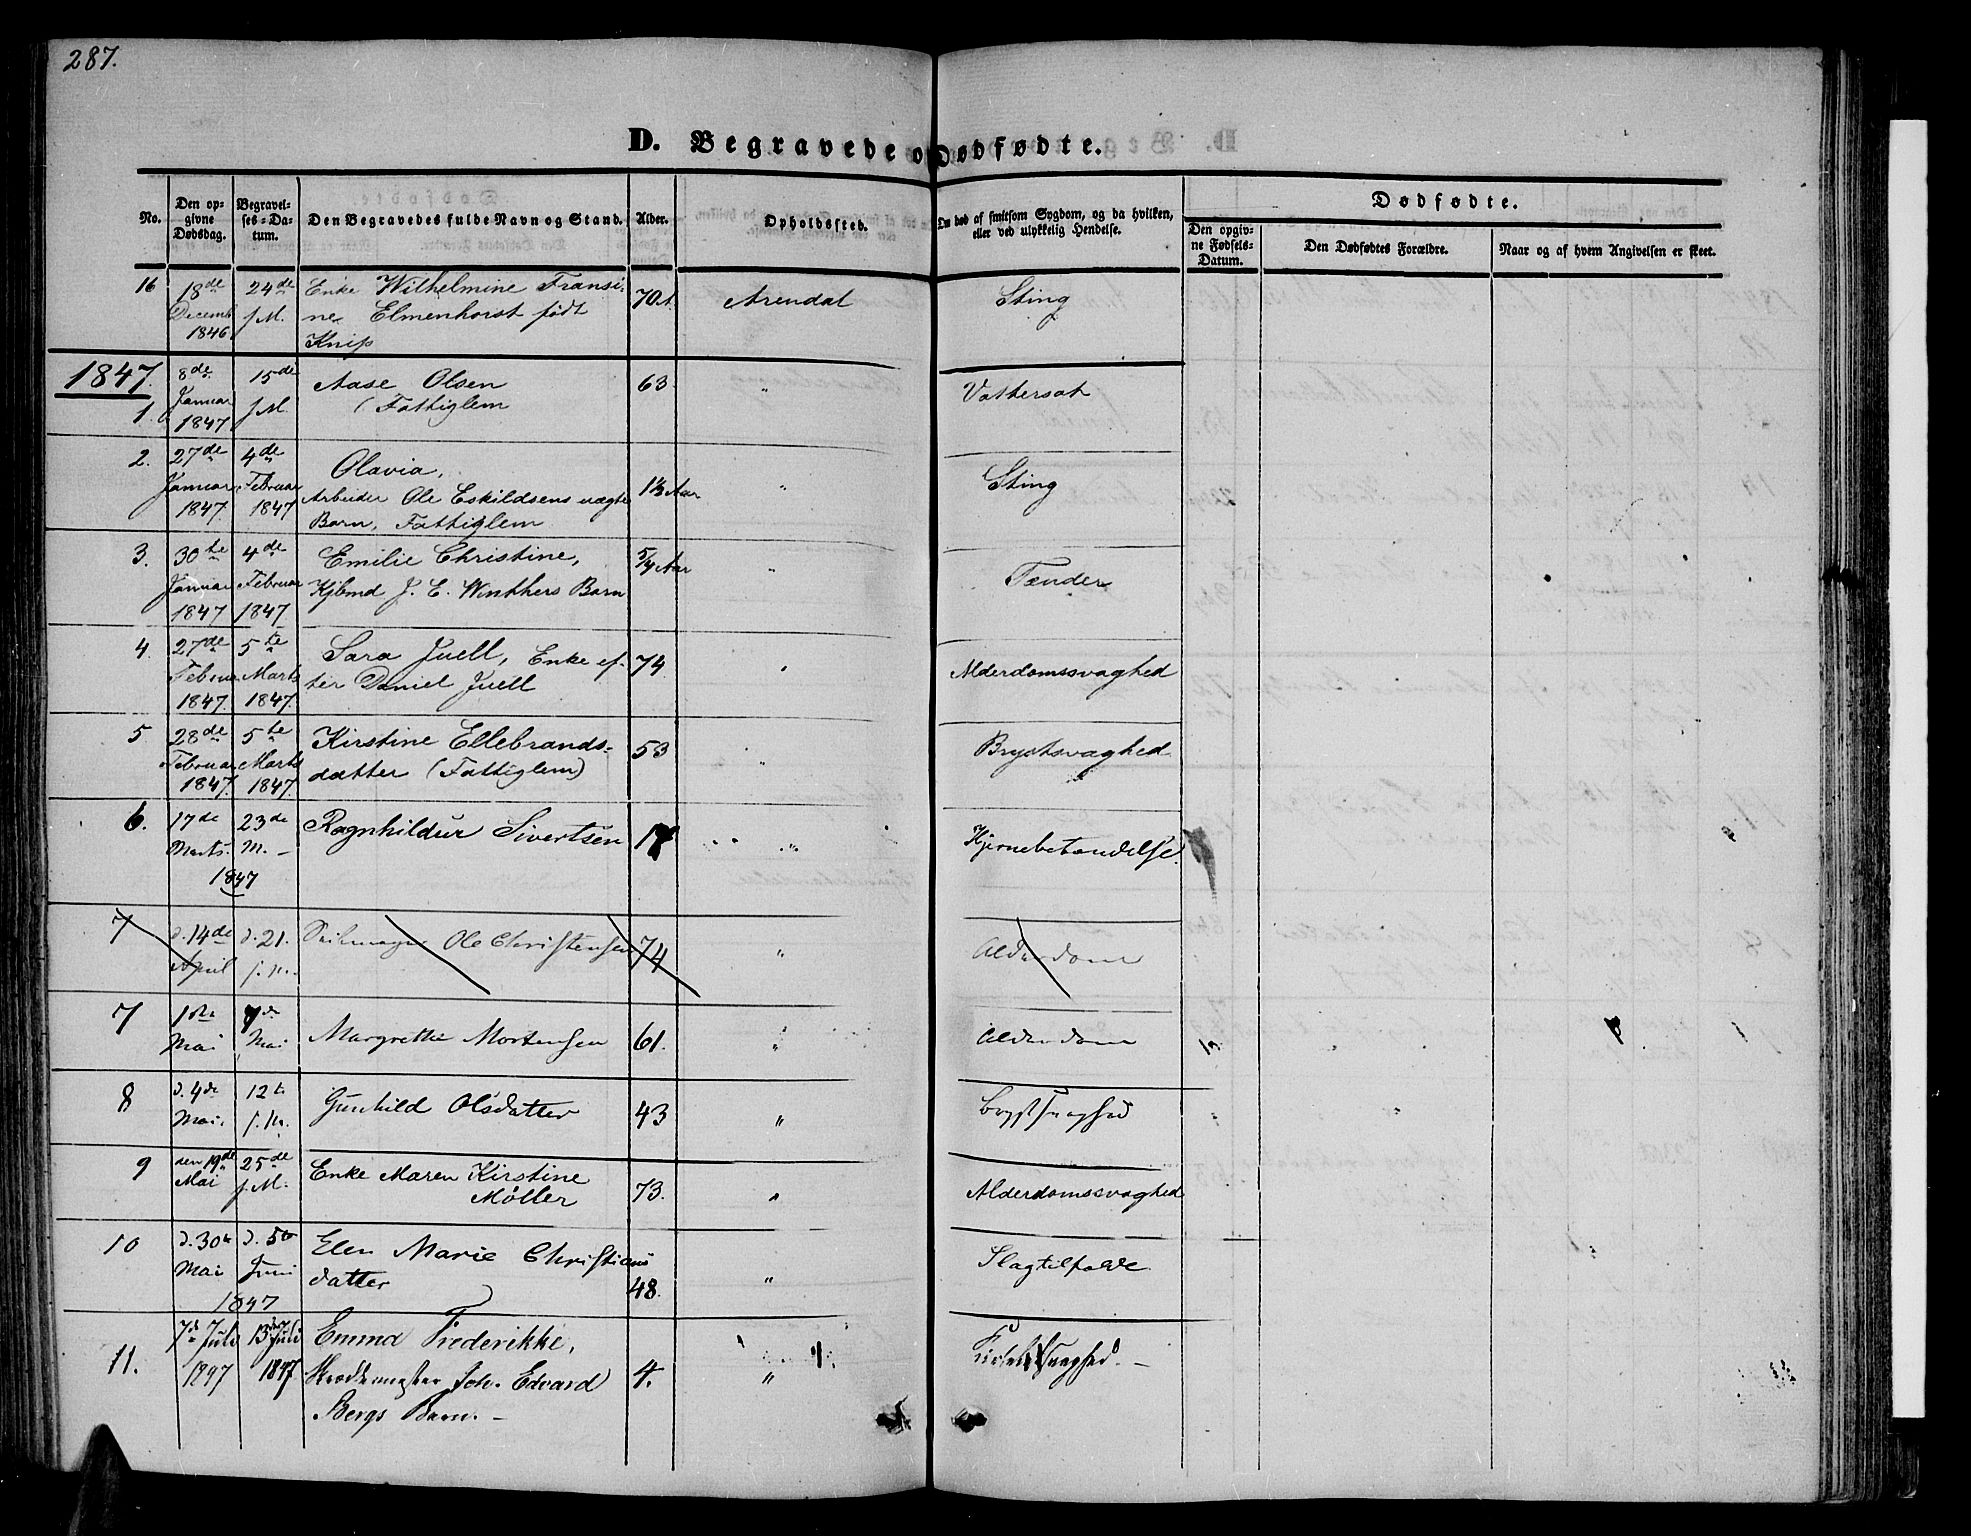 287.
D. Begravede o Dødfødte.
No.
Den opgivne Dødsdag.
Begravelses-Datum.
Den Begravedes fulde Navn og Stand.
Alder.
Opholdssted.
Om død af smitsom Sygdom, og da hvilken, eller ved ulykkelig Hendelse.
Dødfødte.
Den opgivne Fødsels-Datum.
Den Dødfødtes Forældre.
Naar og af hvem Angivelsen er skeet.
16 18de 24de Enke Wilhelmine Fransi- 70 A. Arendal Sting
Decemb f. M. ne Elmenhorst født
1846 Knip
1847.
1. 8de 15de Aase Olsen 63. " Vattersot
Januar f. M. (Fattiglem
1847
2. 27de 4de Olavia, 1½ Aar " Sting
Januar Februar Arbeider Ole Eskildsens uægte
1847. 1847 Barn, Fattiglem
3. 30te 4de Emilie Christine, 5/4 Aar " Tænder
Januar Februar Kjbmd J. E. Winthers Barn
1847 1847
4. 27de 5te Sara Juell, Enke ef- 74 " Alderdomssvaghed
Februar Marts ter Daniel Juell
1847. 1847.
5 28de 5te Kirstine Ellebrands- 53 " Brystsvaghed
Februar Marts datter (Fattiglem)
1847. 1847.
6. 17de 23de Ragnhildur Sivertsen 17 " Hjernebetændelse.
Marts. M. –
1847
7 d. 14de d. 21. Ole Christensen 74 " Alderdom
April f. M.
7 1ste 7de Margrethe Mortensen 61. " Alderdom
Mai Mai
8 d. 4de 12te Gunhild Olsdatter 43 " Brystsvaghed
Mai. f. M.
9 den 19de 25de Enke Maren Kirstine 73. " Alderdomssvaghed
Mai f. M. Møller
10 d. 30te d. 5te Elen Marie Christians
Mai Juni datter 48. " Slagtilfælde
1847
11. 7de Juli 13de Juli Emma Frederikke,
1847 1847 Joh. Edvard 4. "
Bergs Barn. –